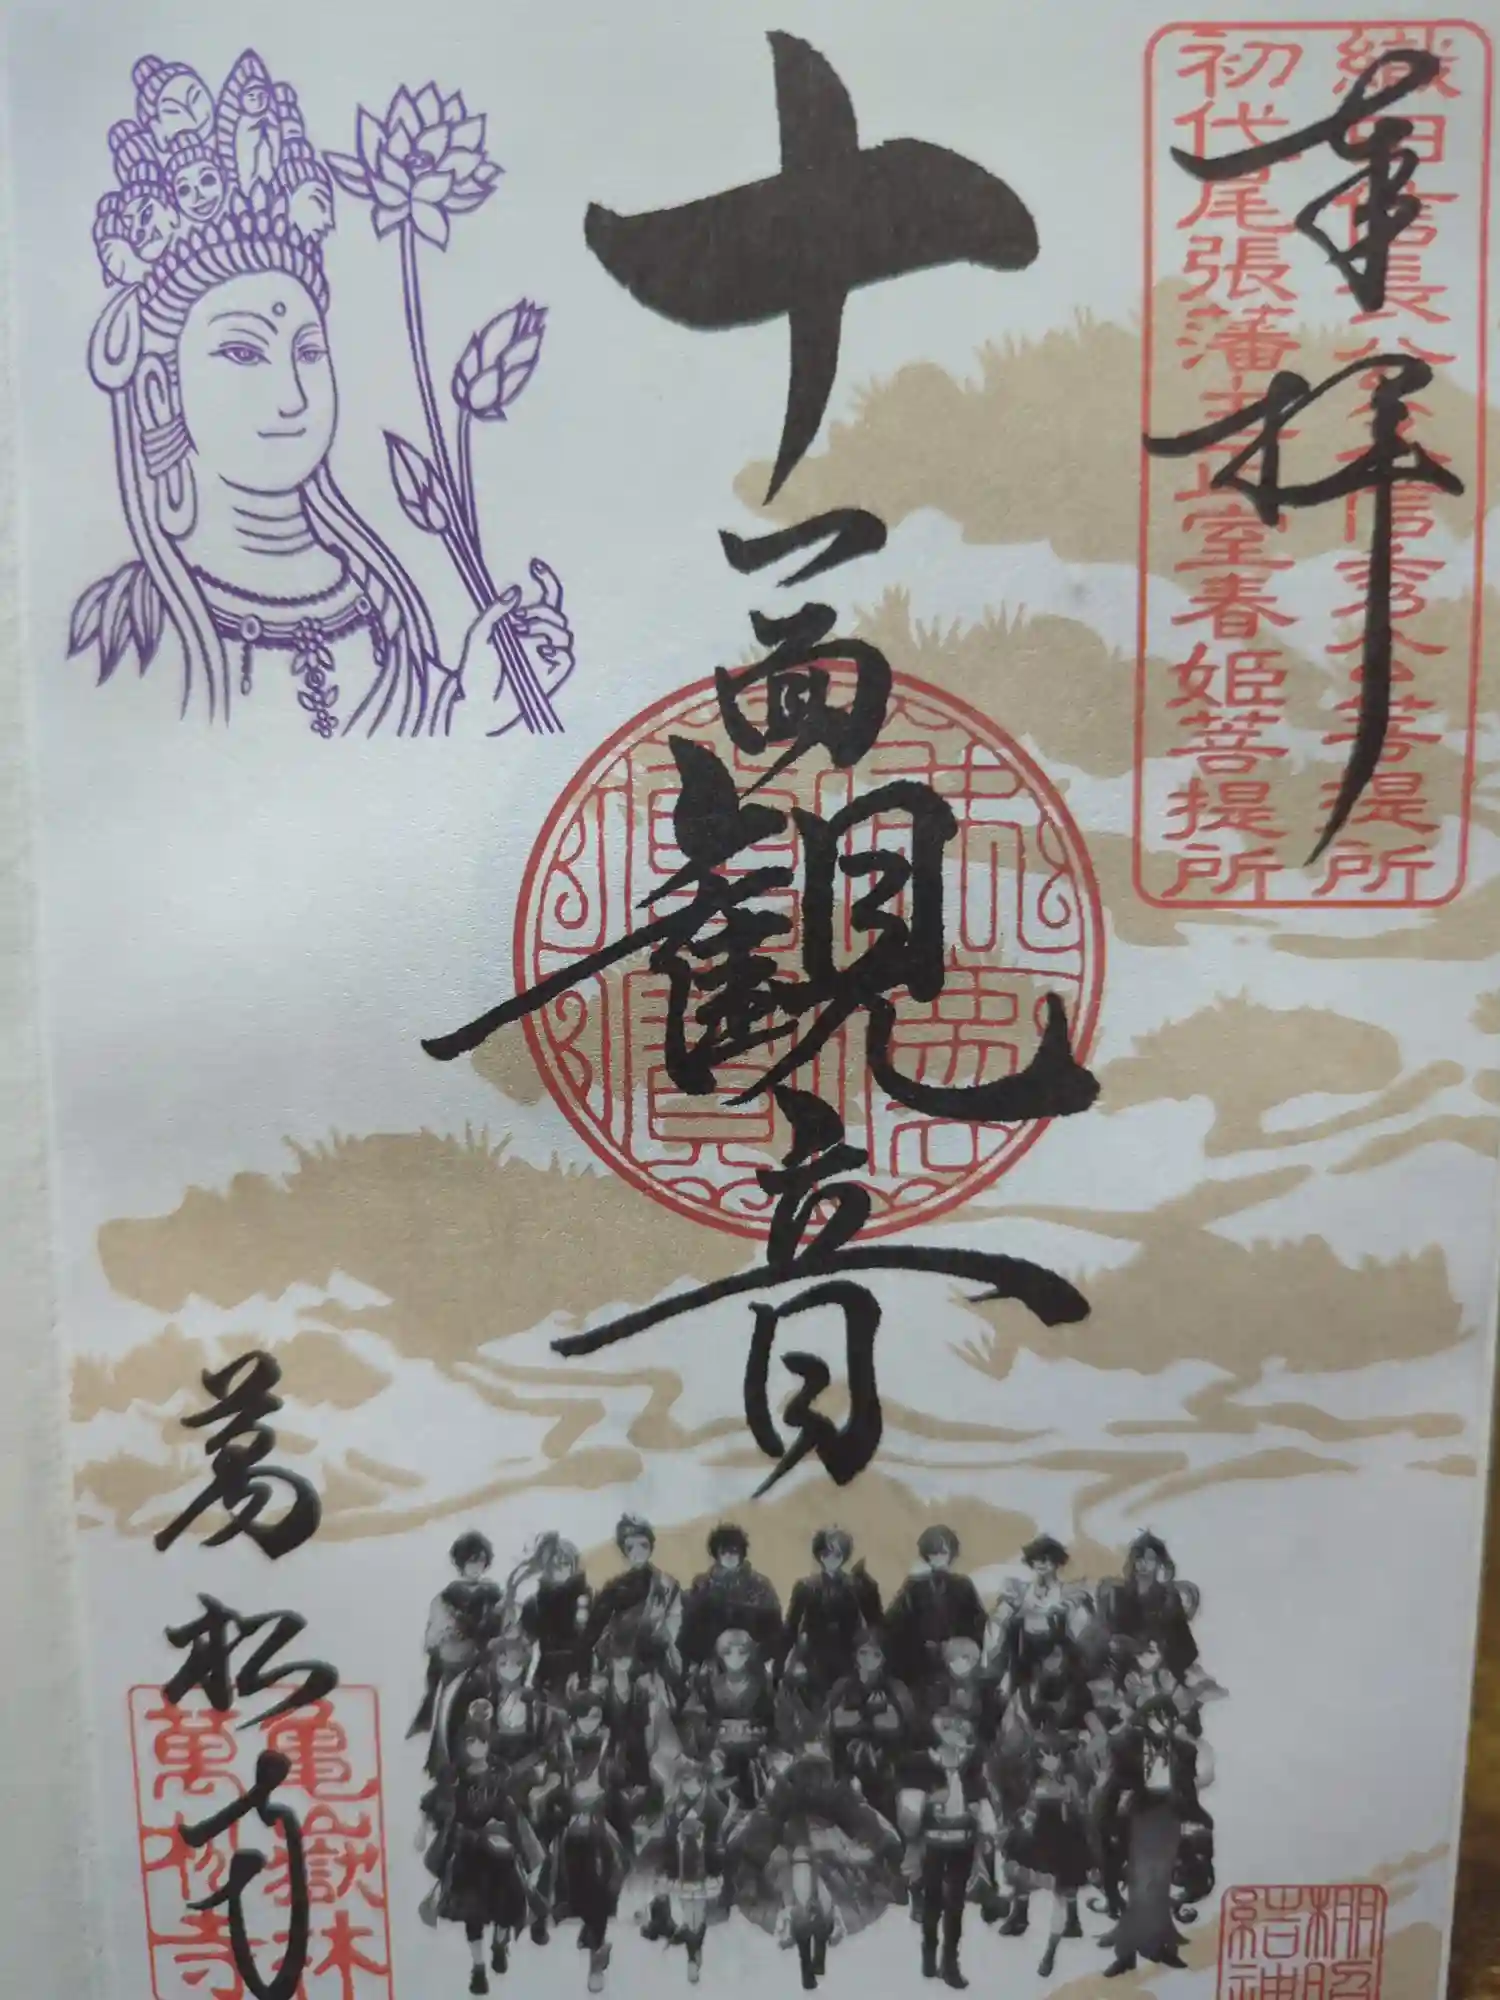 奉拝
織田信長公父信秀公菩提所
初代尾張藩主正室春姫菩提所
十一面観音
萬松寺
亀嶽林
萬松寺